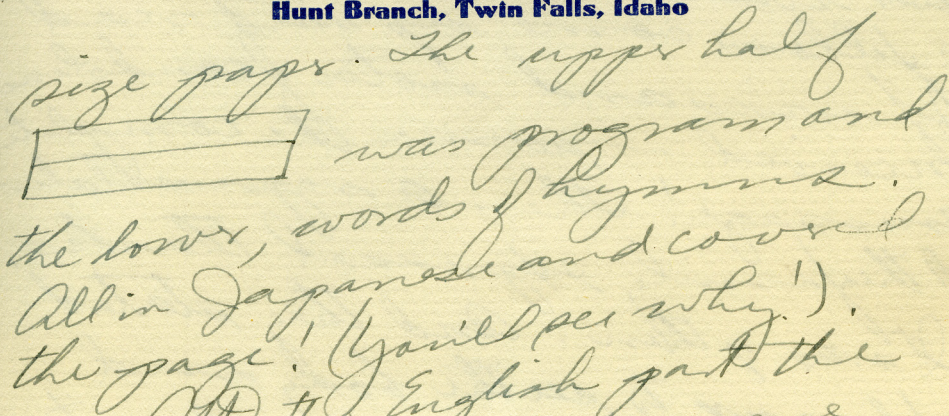 Hunt Branch, Twin Falls, Idaho
size paper. The upper half
was program and
the lower, words of hymns.
All in Japanese and covered
the page! (You'll see why!).
English part the